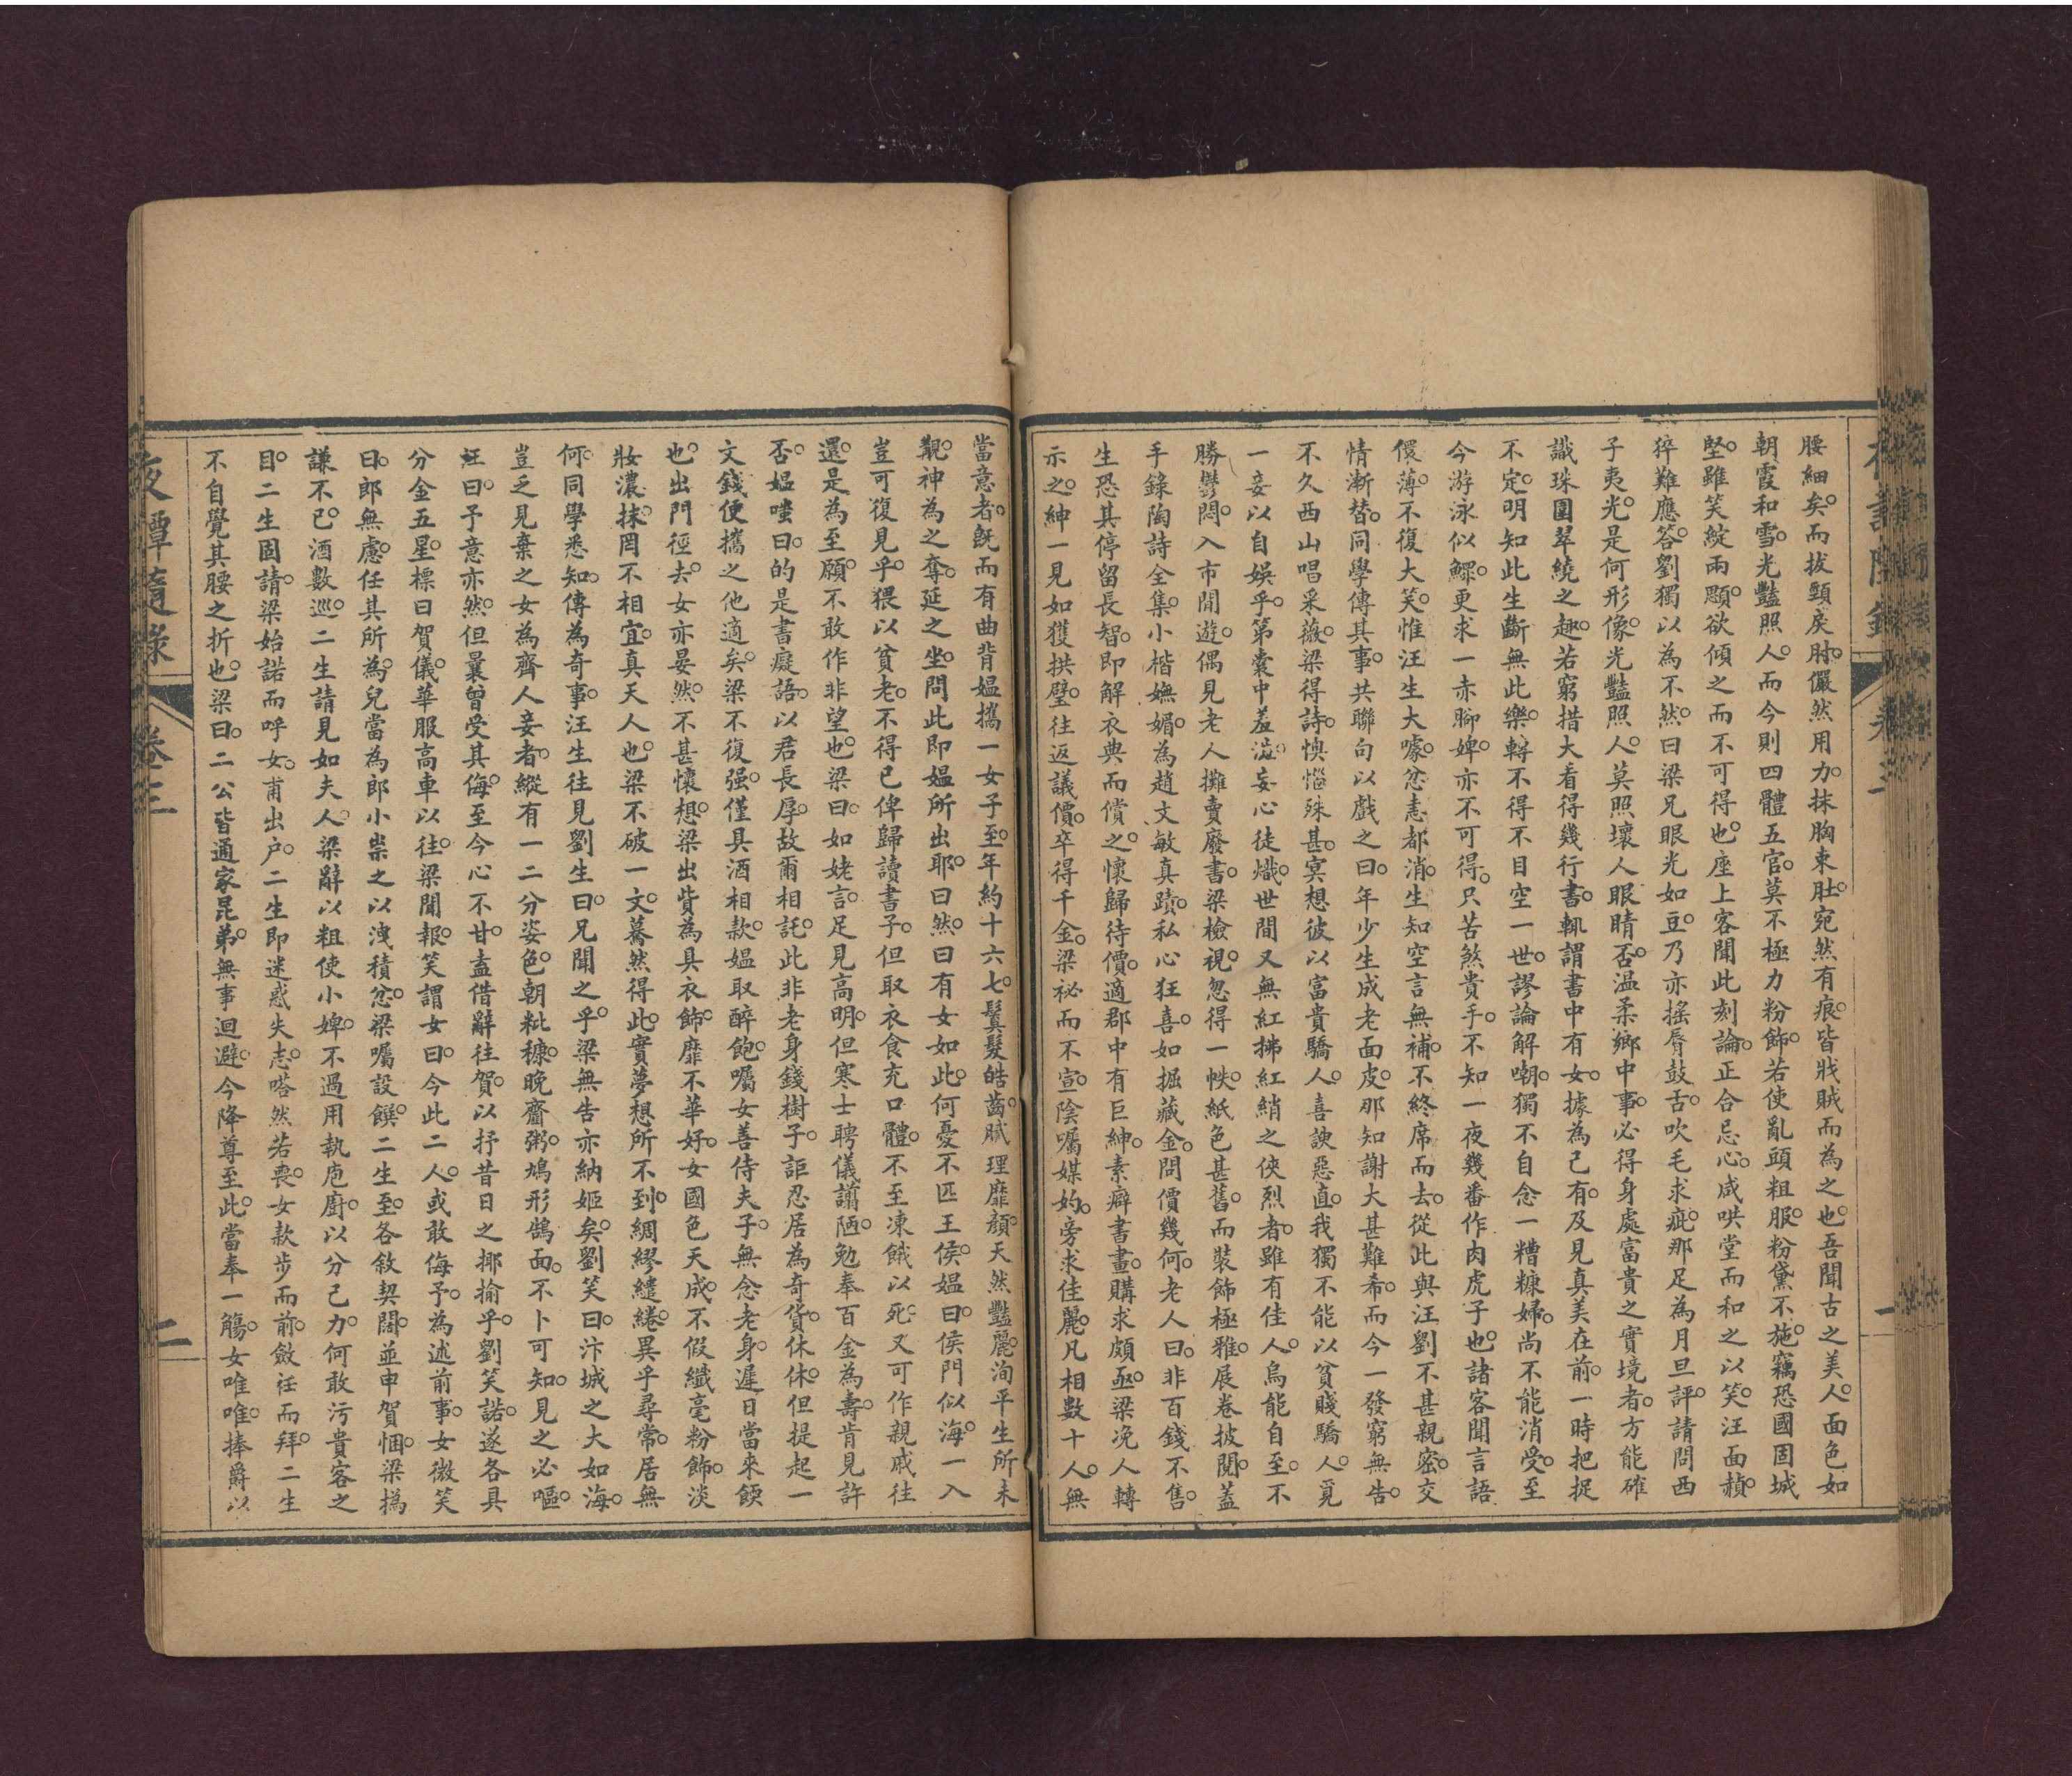 腰細矣。而拔頸戾肘。儼然用力。抹胸束肚。宛然有痕。皆戕賊而為之也。吾聞古之美人。面色如
朝霞和雪。光豔照人。而今則四體五官。莫不極力粉飾。若使亂頭粗服。粉黛不施。竊恐國固城
堅。雖笑綻兩頤。欲傾之而不可得也。座上客聞此刻論。正合忌心。咸哄堂而和之以笑。汪面赬。
猝難應答。劉獨以為不然。曰梁兄眼光如豆。乃亦搖脣鼓舌。吹毛求疵。那足為月旦評。請問西
子夷光。是何形像。光豔照人。莫照壞人眼睛否。溫柔鄉中事。必得身處富貴之實境者。方能確
識珠圍翠繞之趣。若窮措大看得幾行書。輒謂書中有女。據為己有。及見真美在前。一時把捉
不定。明知此生斷無此樂。轉不得不目空一世。謬論解嘲。獨不自念一糟糠婦。尚不能消受。至
今游泳似鰥。更求一赤腳婢。亦不可得。只苦煞貴手。不知一夜幾番作肉虎子也。諸客聞言語
儇薄。不復大笑。惟汪生大噱。忿恚都消。生知空言無補。不終席而去。從此與汪劉不甚親密。交
情漸替。同學傳其事。共聯句以戲之曰。年少生成老面皮。那知謝大甚難希。而今一發窮無告。
不久西山唱采薇。梁得詩。懊惱殊甚。冥想彼以富貴驕人。喜諛惡直。我獨不能以貧賤驕人。覓
一妾以自娛乎。第囊中羞澁。妄心徒熾。世間又無紅拂紅綃之俠烈者。雖有佳人。烏能自至。不
勝鬱悶。入市閒遊。偶見老人攤賣廢書。梁檢視。忽得一帙。紙色甚舊。而裝飾極雅。展卷披閱。蓋
手錄陶詩全集。小楷嫵媚。為趙文敏真蹟。私心狂喜。如掘藏金。問價幾何。老人曰。非百錢不售。
生恐其停留長智。即解衣典而償之。懷歸待價。適郡中有巨紳。素癖書畫。購求頗亟。梁浼人轉
示之。紳一見如獲拱璧。往返議價。卒得千金。梁祕而不宣。陰囑媒妁。旁求佳麗。凡相數十人。無
當意者。既而有曲背媼攜一女子至。年約十六七。鬒髮皓齒。膩理靡顏。天然豔麗。洵平生所未
覯。神為之奪。延之坐。問此即媼所出耶。曰然。曰有女如此。何憂不匹王侯。媼曰侯門似海。一入
豈可復見乎。猥以貧老。不得已俾歸讀書子。但取衣食充口體。不至凍餓以死。又可作親戚往
還。是為至願。不敢作非望也。梁曰。如姥言。足見高明。但寒士聘儀謭陋。勉奉百金為壽。肯見許
否。媼嗤曰。的是書癡語。以君長厚。故爾相託。此非老身錢樹子。詎忍居為奇貨。休休。但提起一
文錢。便攜之他適矣。梁不復强。僅具酒相款。媼取醉飽。囑女善侍夫子。無念老身。遲日當來餪
也。出門徑去。女亦晏然。不甚懷想。梁出貲為具衣飾。靡不華好。女國色天成。不假纖毫粉飾。淡
妝濃抹。罔不相宜。真天人也。梁不破一文。驀然得此。實夢想所不到。綢繆繾綣。異乎尋常。居無
何。同學悉知。傳為奇事。汪生往見劉生曰。兄聞之乎。梁無告亦納姬矣。劉笑曰。汴城之大如海。
豈乏見棄之女為齊人妾者。縱有一二分姿色。朝粃糠。晚齏粥。鳩形鵠面。不卜可知。見之必嘔。
汪曰。予意亦然。但曩曾受其侮。至今心不甘。盍借辭往賀。以抒昔日之揶揄乎。劉笑諾。遂各具
分金五星。標曰賀儀。華服高車以往。梁聞報。笑謂女曰。今此二人。或敢侮予。為述前事。女微笑
曰。郎無慮。任其所為。兒當為郎小祟之。以洩積忿。梁囑設饌。二生至。各敘契闊。並申賀悃。梁撝
謙不已。酒數巡。二生請見如夫人。梁辭以粗使小婢。不過用執庖廚。以分己力。何敢污貴客之
目。二生固請。梁始諾而呼女。甫出户。二生即迷惑失志。嗒然若喪。女款步而前。斂衽而拜。二生
不自覺其腰之折也。梁曰。二公皆通家昆弟。無事迴避。今降尊至此。當奉一觴。女唯唯。捧爵以
夜譚隨錄 卷三 二